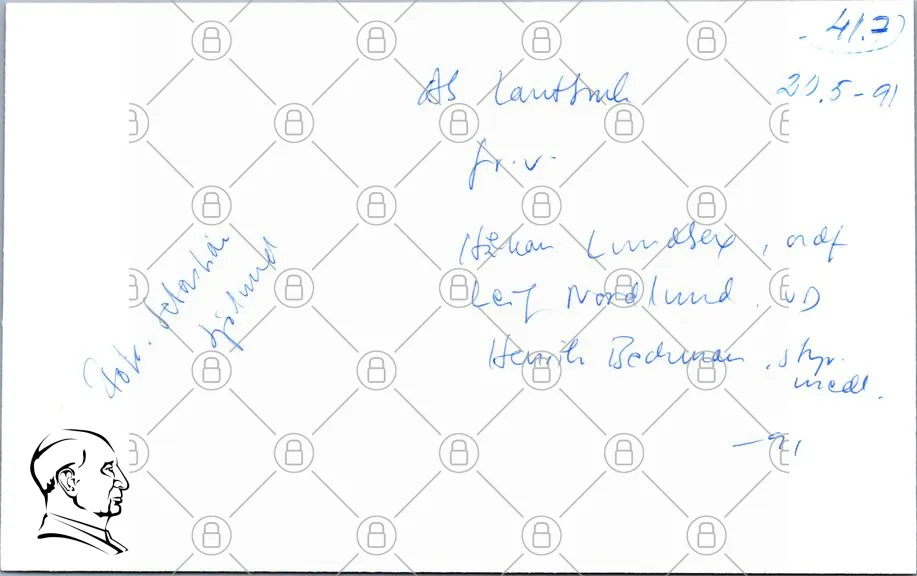 41.7
AB Lantbruk
20.5-91
fr.v.
Håkan Lundberg, ordf
Leif Nordlund, VD
Henrik Beckman, styr.
medl.
-91
Foto. Sebastian
Sjölund